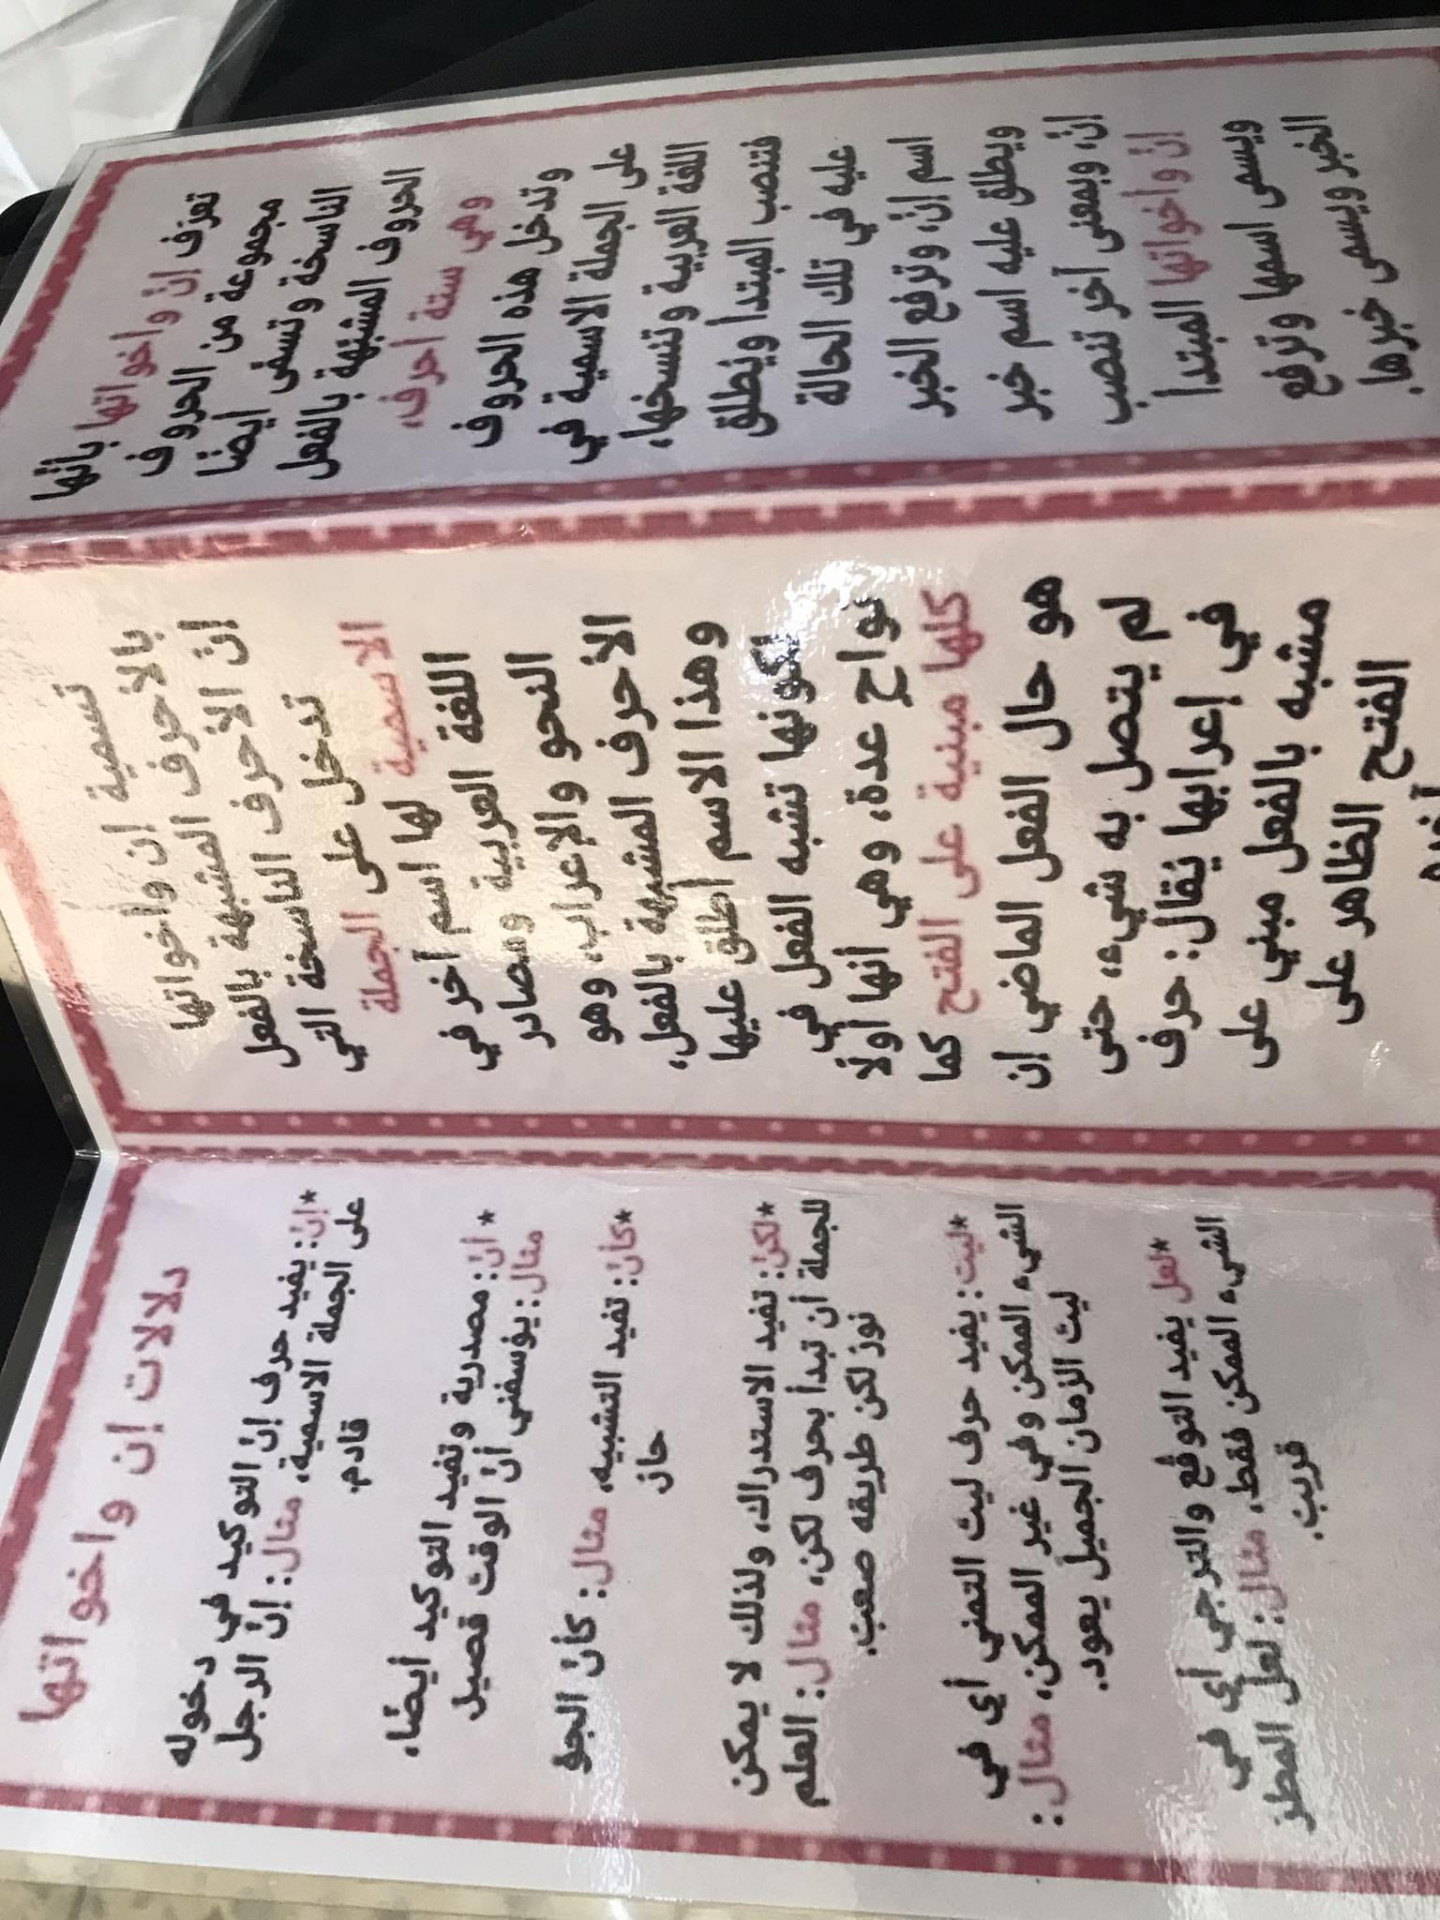 تعرّف إنّ وأخواتها بأنّها
مجموعة من الحروف
الناسخة وتسمّى أيضًا
الحروف المشبّهة بالفعل
وهي ستة أحرف،
وتدخل هذه الحروف
على الجملة الاسمية في
اللغة العربية وتنسخها،
فتنصب المبتدأ ويُطلق
عليه في تلك الحالة
اسم إنّ، وترفع الخبر
ويطلق عليه اسم خبر
إنّ، وبمعنى آخر تنصب
إنّ وأخواتها المبتدأ
ويسمى اسمها وترفع
الخبر ويسمى خبرها.
تسمية إن وأخواتها
بالأحرف المشبهة بالفعل
إنّ الأحرف الناسخة التي
تدخل على الجملة
الاسمية لها اسم آخر في
اللغة العربية ومصادر
النحو والإعراب، وهو
الأحرف المشبهة بالفعل،
وهذا الاسم أُطلق عليها
لكونها تشبه الفعل في
نواحٍ عدة، وهي أنها أولًا
كلها مبنية على الفتح كما
هو حال الفعل الماضي إن
لم يتصل به شيء، حتى
في إعرابها يُقال: حرف
مشبه بالفعل مبني على
الفتح الظاهر على
آخره
دلالات إن واخواتها
*إنّ: يفيد حرف إنّ التوكيد في دخوله
على الجملة الاسمية، مثال: إنّ الرجل
قادم.
*أنّ: مصدرية وتفيد التوكيد أيضًا،
مثال: يؤسفني أنّ الوقت قصير
*كأنّ: تفيد التشبيه، مثال: كأنّ الجوّ
حار
*لكنّ: تفيد الاستدراك، ولذلك لا يمكن
للجملة أن تبدأ بحرف لكن، مثال: العلم
نورٌ لكن طريقه صعبٌ.
*ليت: يفيد حرف ليت التمني أي في
الشيء الممكن وفي غير الممكن، مثال:
ليت الزمان الجميل يعود.
*لعل يفيد التوقع والترجي أي في
الشيء الممكن فقط، مثال: لعل المطرَ
قريبٌ.